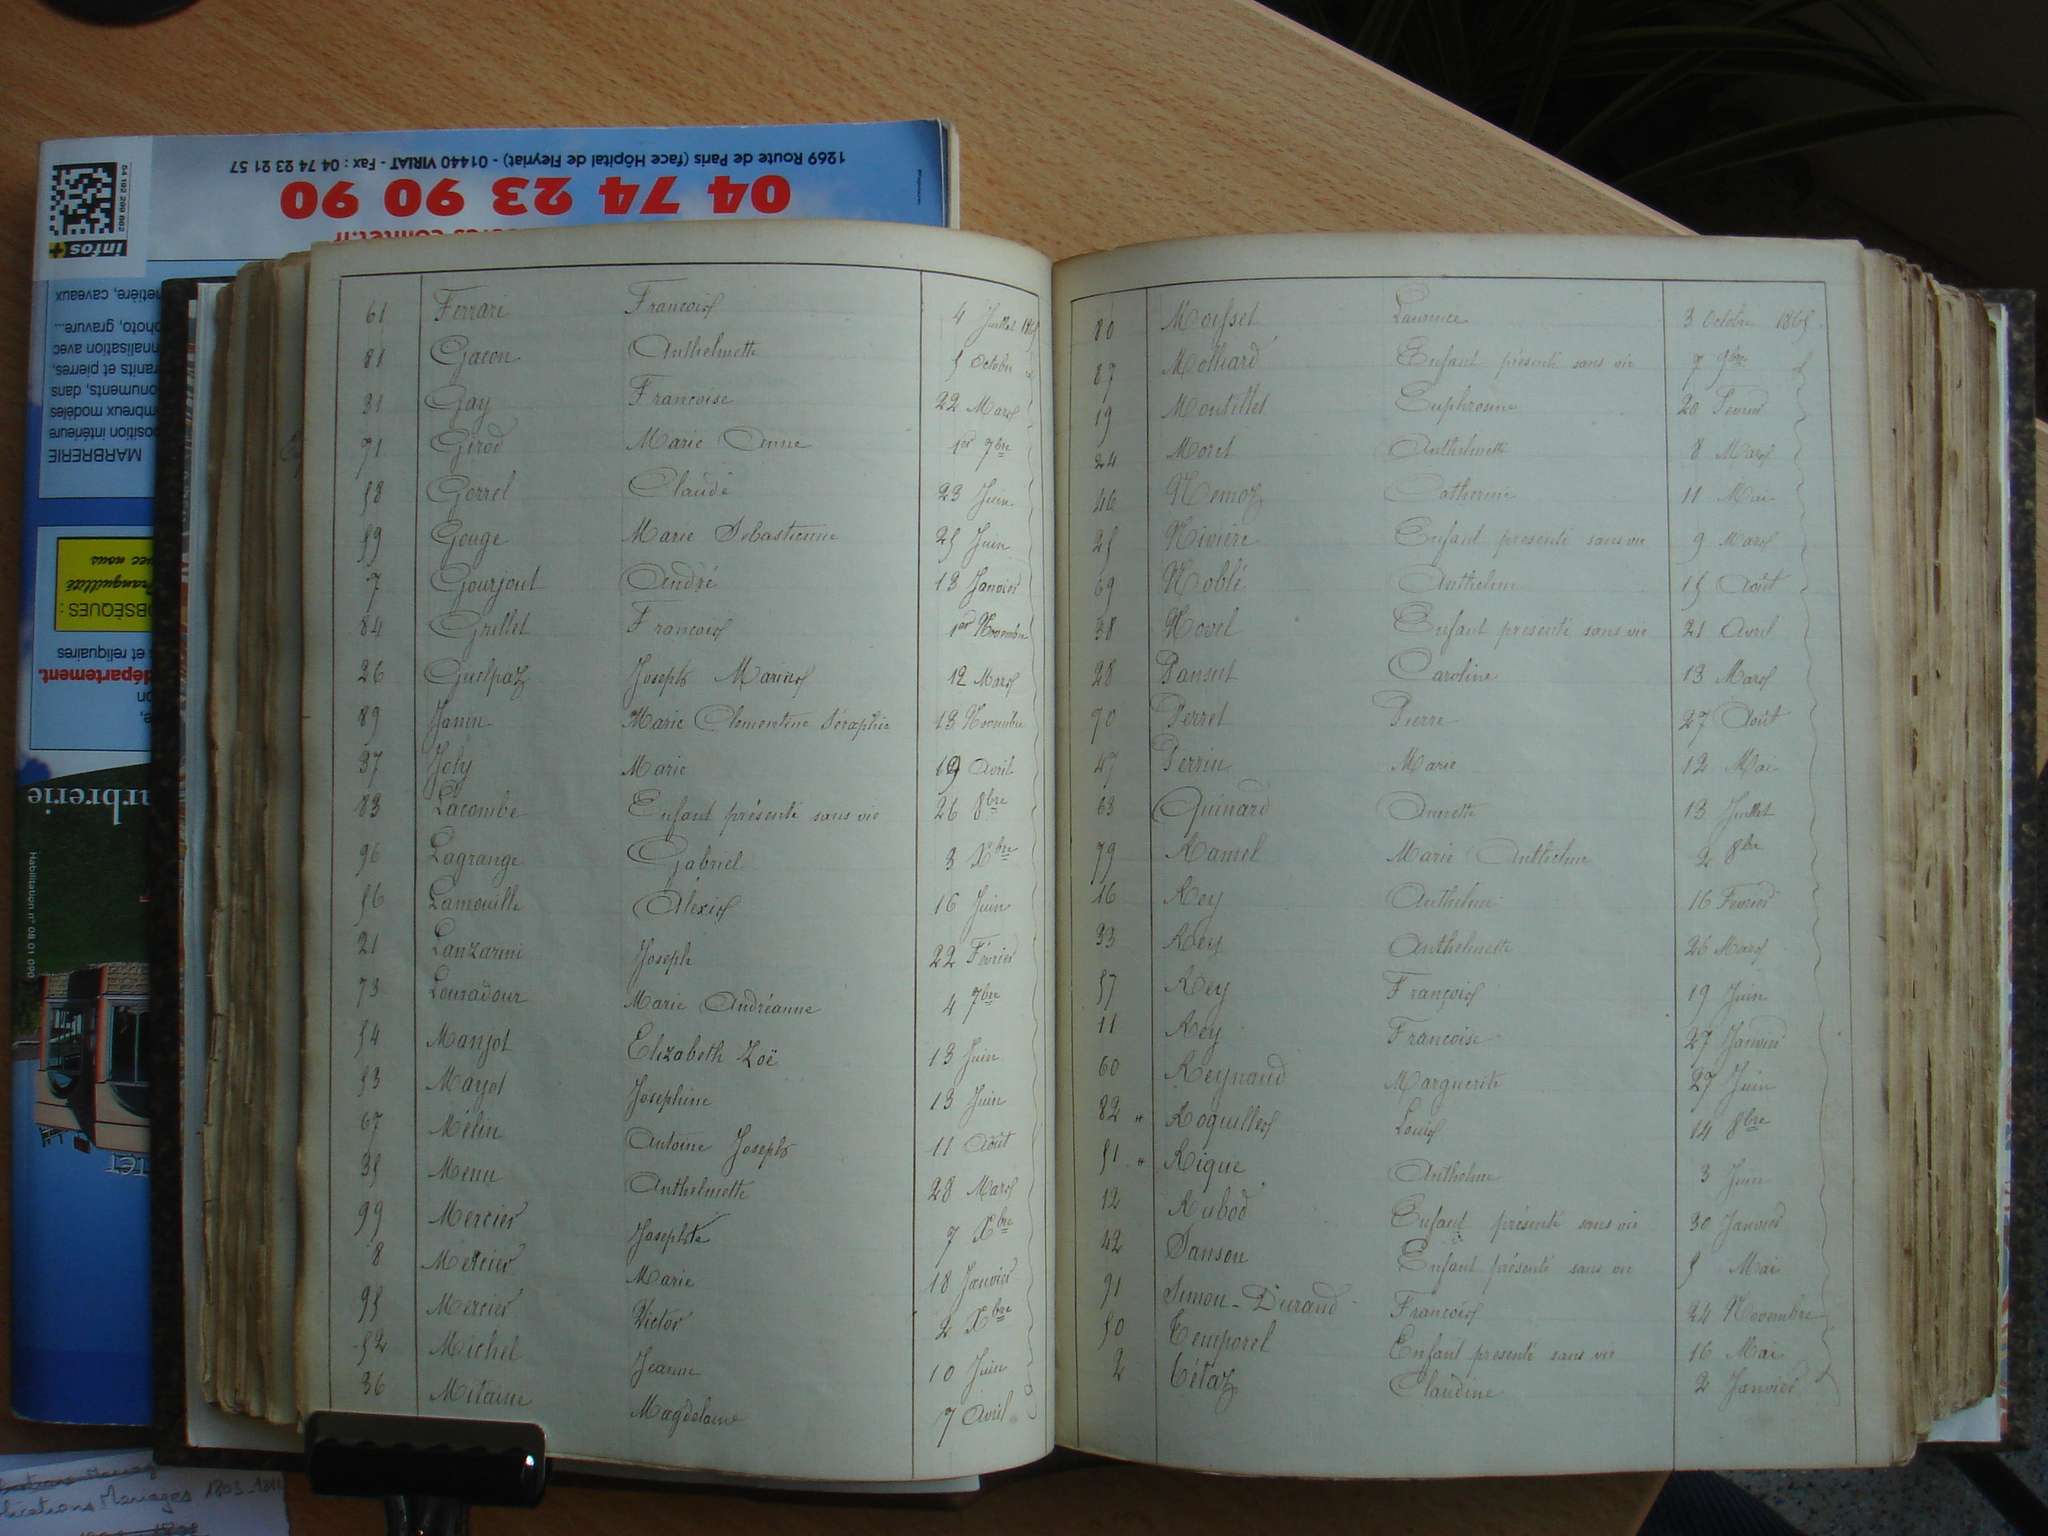 1269 Route de Paris (face Hôpital de Fleyriat) - 01440 VIRIAT - Fax : 04 74 23 21 57
04 74 23 90 90
54 192 299 802
Infos+
metière, caveaux
photo, gravure...
nnalisation avec
ranits et pierres,
onuments, dans
ombreux modèles
position intérieure
MARBRERIE
avec nous
Tranquillité
OBSÈQUES :
s et reliquaires
département.
arbrerie
Habilitation n° 08 01 090
61 Ferrari François 4 Juillet 1865
81 Gacon Anthelmette 5 Octobre
31 Gay Françoise 22 Mars
71 Girod Marie Anne 1er 7bre
58 Gorrel Claude 23 Juin
59 Gouge Marie Sébastienne 25 Juin
7 Gourjout André 13 Janvier
84 Grillet François 1er Novembre
26 Guelpaz Joseph Marius 12 Mars
89 Janin Marie Clémentine Séraphie 13 Novembre
37 Joly Marie 19 Avril
83 Lacombe Enfant présenté sans vie 26 8bre
96 Lagrange Gabriel 3 Xbre
56 Lamouille Alexis 16 Juin
21 Lanzarini Joseph 22 Février
73 Louradour Marie Andréanne 4 7bre
54 Manjot Elizabeth Zoë 13 Juin
53 Mayot Joséphine 13 Juin
67 Mélin Antoine Joseph 11 Août
35 Menu Anthelmette 28 Mars
99 Mercier Josephte 7 Xbre
8 Mercier Marie 18 Janvier
95 Mercier Victor 2 Xbre
52 Michel Jeanne 10 Juin
36 Mitaine Magdelaine 7 Avril
80 Moisset Laurence 3 Octobre 1865
87 Molliard Enfant présenté sans vie 7 9bre
19 Montillet Euphrosine 20 Février
24 Moret Anthelmette 8 Mars
46 Nemoz Catherine 11 Mai
25 Nivière Enfant présenté sans vie 9 Mars
69 Noblé Anthelme 15 Août
38 Novel Enfant présenté sans vie 21 Avril
28 Pansut Caroline 13 Mars
70 Perret Pierre 27 Août
47 Perrin Marie 12 Mai
63 Quinard Annette 13 Juillet
79 Ramel Marie Anthelme 2 8bre
16 Rey Anthelme 16 Février
33 Rey Anthelmette 26 Mars
57 Rey François 19 Juin
11 Rey Françoise 27 Janvier
60 Reynaud Marguerite 27 Juin
82 " Roquilles Louis 14 8bre
51 " Rique Anthelme 3 Juin
12 Rubod Enfant présenté sans vie 30 Janvier
42 Sanson Enfant présenté sans vie 5 Mai
91 Simon-Durand François 24 Novembre
50 Temporel Enfant présenté sans vie 16 Mai
2 Tétaz Claudine 2 Janvier
Mariages 1803-